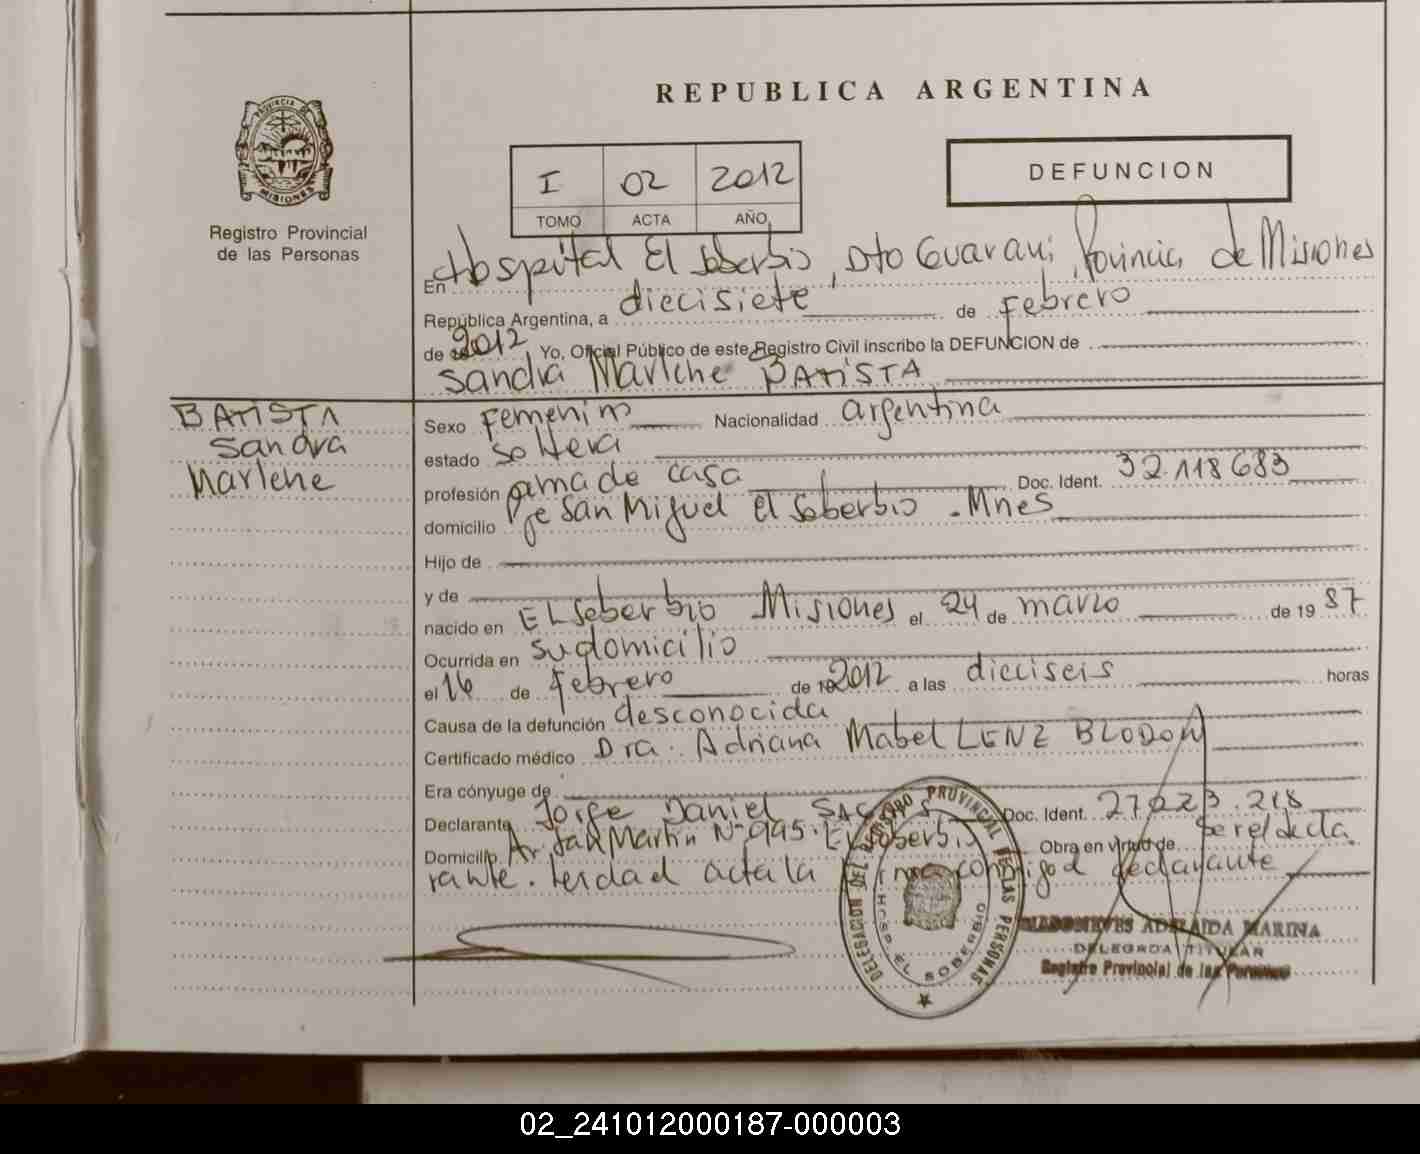 REPUBLICA ARGENTINA
PROVINCIA DE
MISIONES
Registro Provincial
de las Personas
I 02 2012
TOMO ACTA AÑO
DEFUNCION
En Hospital El Soberbio, Dto Guarani, Provincia de Misiones
República Argentina, a diecisiete de Febrero
de 2012 Yo, Oficial Público de este Registro Civil inscribo la DEFUNCION de
Sandra Marlene BATISTA
BATISTA
Sandra
Marlene
Sexo Femenino Nacionalidad argentina
estado soltera
profesión ama de casa Doc. Ident. 32.118683
domicilio Pje San Miguel El Soberbio - Mnes
Hijo de
y de
nacido en EL Soberbio Misiones el 24 de marzo de 19 87
Ocurrida en su domicilio
el 16 de Febrero de 2012 a las dieciseis horas
Causa de la defunción desconocida
Certificado médico Dra. Adriana Mabel LENZ BLODOW
Era cónyuge de
Declarante Jorge Daniel Doc. Ident. 27223.218
Domicilio Av San Martin Nº 995. El Soberbio Obra en virtud de Ser el decla
rante. Leida el acta la firma conmigo el declarante
DELEGACION DEL REGISTRO PROVINCIAL DE LAS PERSONAS
HOSP. EL SOBERBIO
ADELAIDA MARINA
DELEGADA TITULAR
Registro Provincial de las Personas
02_241012000187-000003